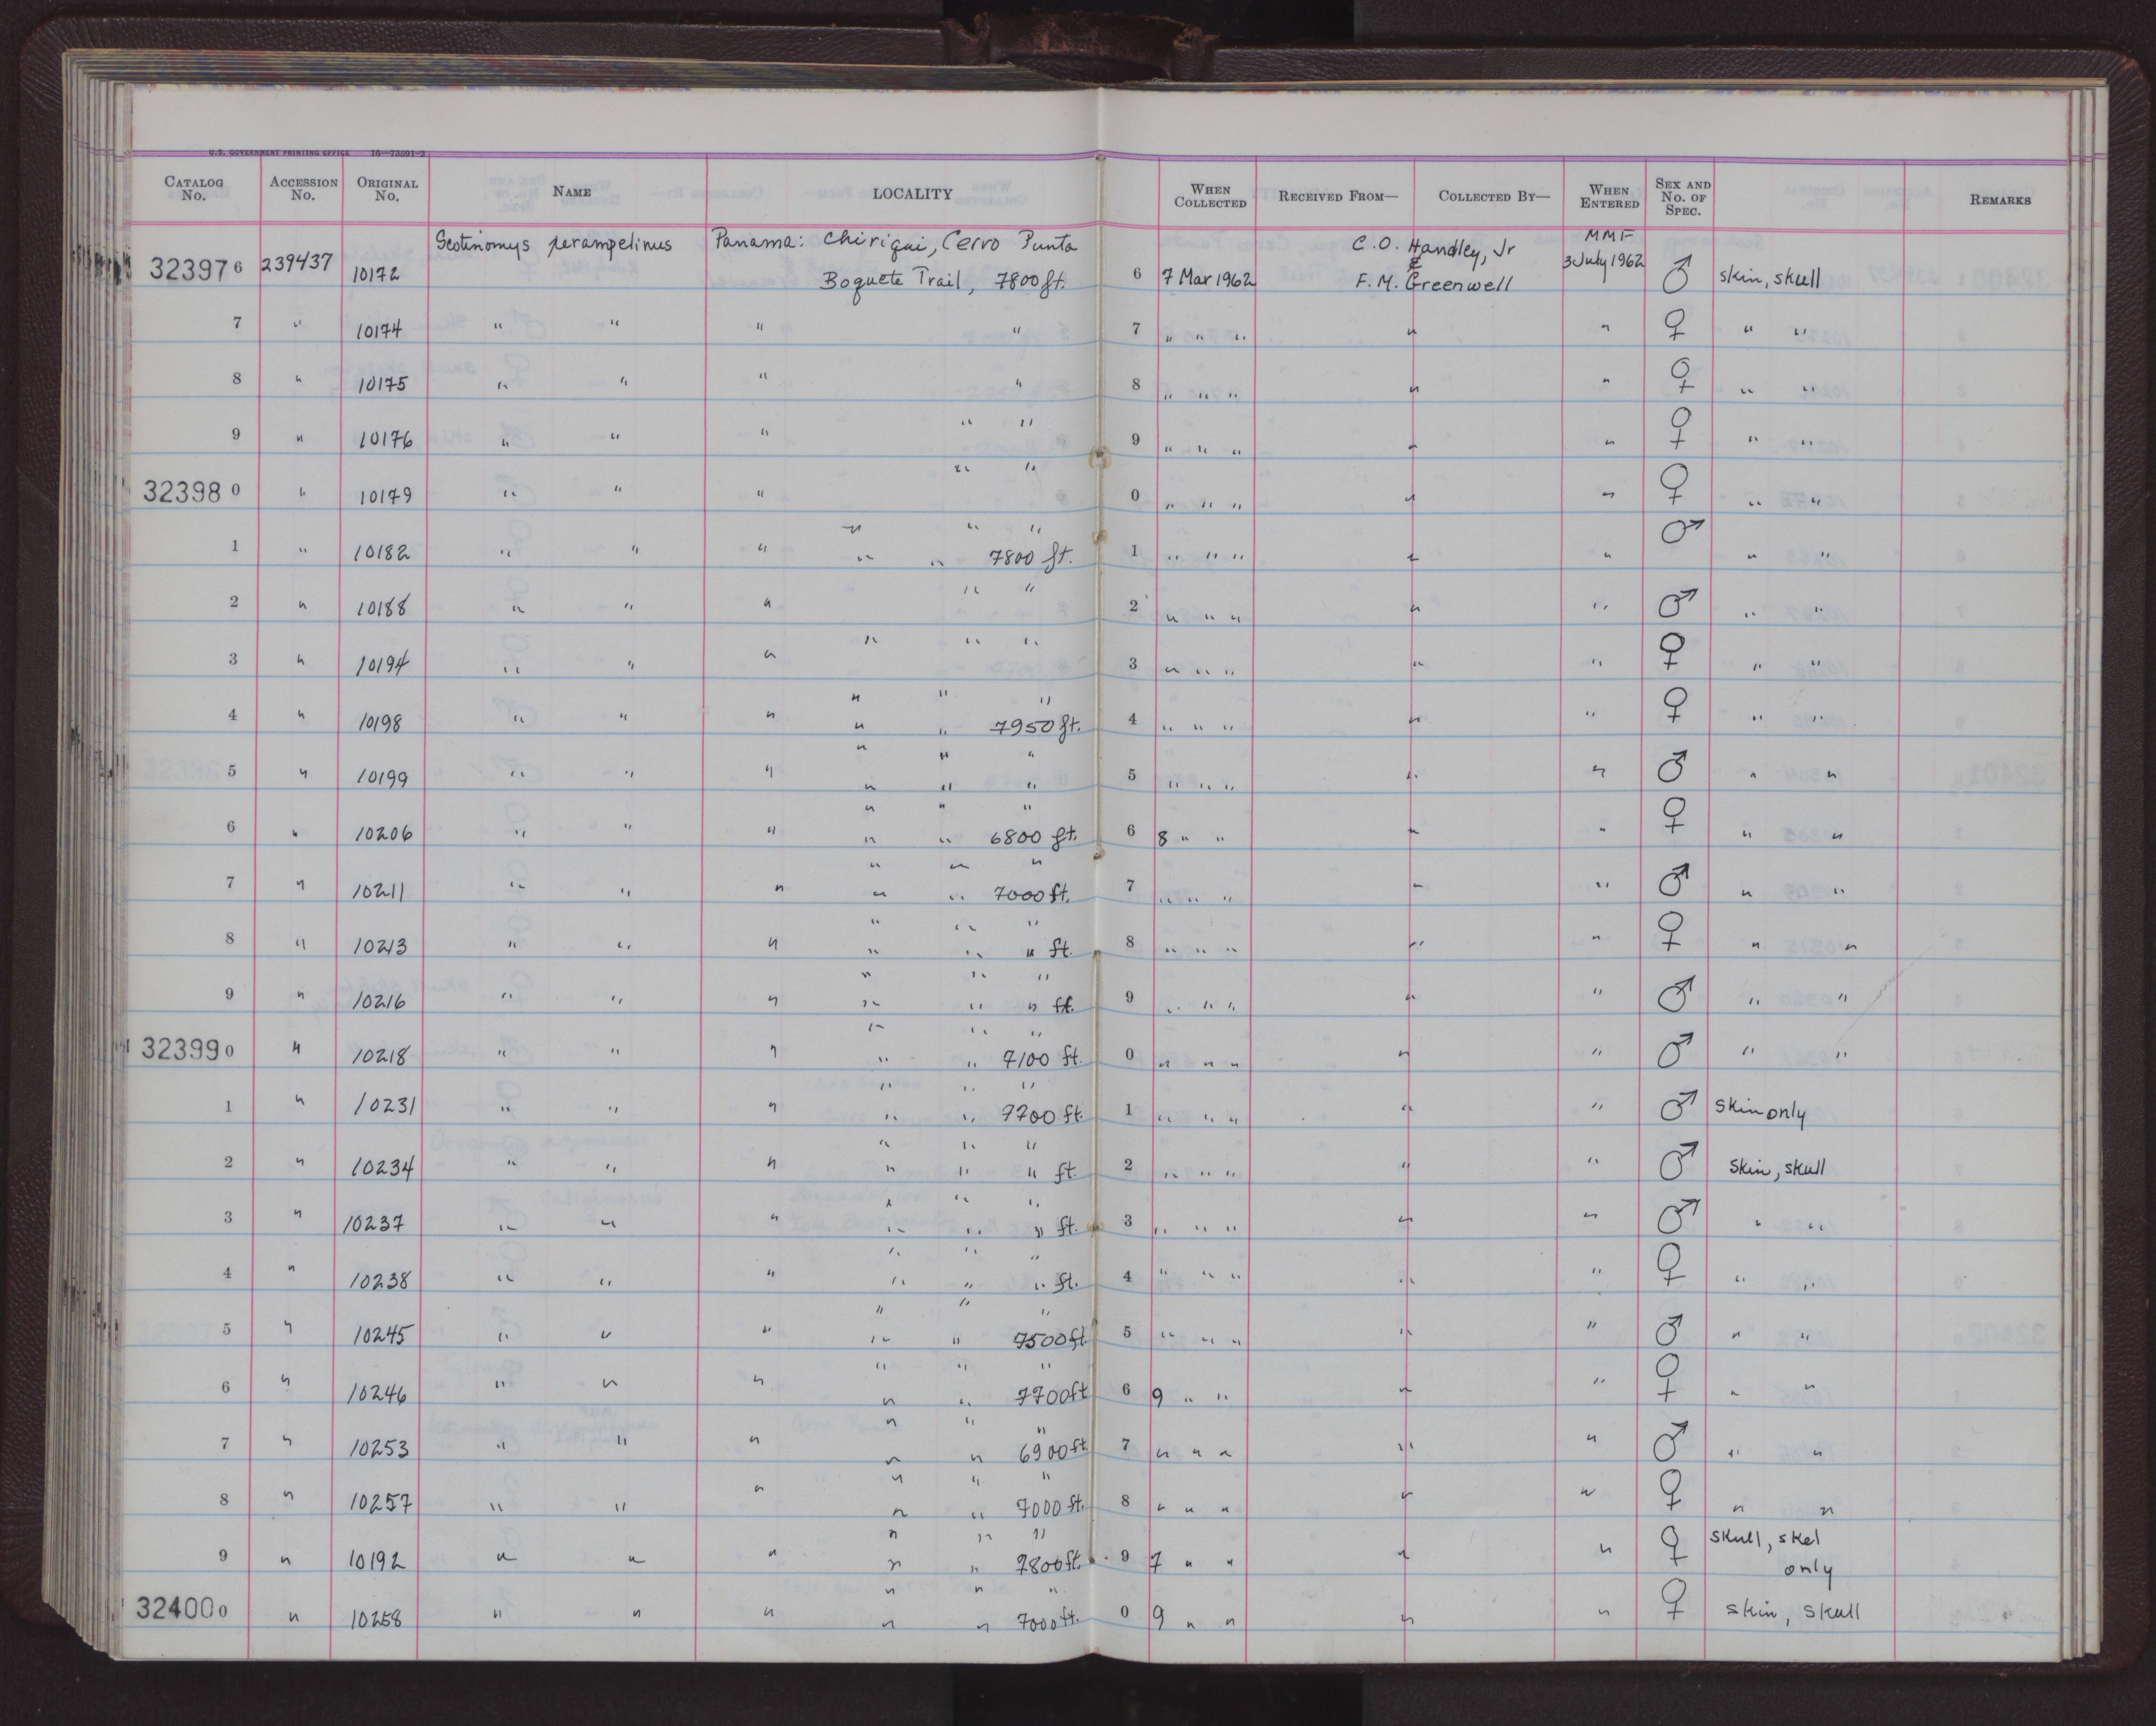 U.S. GOVERNMENT PRINTING OFFICE 16—73591-2
CATALOG No. ACCESSION No. ORIGINAL No. NAME LOCALITY WHEN COLLECTED RECEIVED FROM— COLLECTED BY— WHEN ENTERED SEX AND No. OF SPEC. REMARKS
Scotinomys xerampelinus Panama: Chiriqui, Cerro Punta C.O. Handley, Jr MMF
323976 239437 10172 Boquete Trail, 7800 ft. 6 7 Mar 1962 & F. M. Greenwell 3 July 1962 ♂ skin, skull
7 " 10174 " " " " 7 " " " " " ♀ " "
8 " 10175 " " " " 8 " " " " " ♀ " "
9 " 10176 " " " " " 9 " " " " " ♀ " "
323980 " 10179 " " " " " 0 " " " " " ♀ " "
" " "
1 " 10182 " " " " " 7800 ft. 1 " " " " " ♂ " "
2 " 10188 " " " " " 2 " " " " " ♂ " "
3 " 10194 " " " " " " 3 " " " " " ♀ " "
" " "
4 " 10198 " " " " " 7950 ft. 4 " " " " " ♀ " "
" " "
5 " 10199 " " " " " " 5 " " " " " ♂ " "
" " "
6 " 10206 " " " " " 6800 ft. 6 8 " " " " ♀ " "
" " "
7 " 10211 " " " " " 7000 ft. 7 " " " " " ♂ " "
" " "
8 " 10213 " " " " " " ft. 8 " " " " " ♀ " "
" " "
9 " 10216 " " " " " " ft. 9 " " " " " ♂ " "
" " "
323990 " 10218 " " " " " 7100 ft. 0 " " " " " ♂ " "
" " "
1 " 10231 " " " " " 7700 ft. 1 " " " " " ♂ Skin only
" " "
2 " 10234 " " " " " " ft. 2 " " " " " ♂ Skin, skull
" " "
3 " 10237 " " " " " " ft. 3 " " " " " ♂ " "
" " "
4 " 10238 " " " " " " ft. 4 " " " " " ♀ " "
" " "
5 " 10245 " " " " " 7500 ft 5 " " " " " ♂ " "
" " "
6 " 10246 " " " " " 7700 ft 6 9 " " " " ♀ " "
" " "
7 " 10253 " " " " " 6900 ft. 7 " " " " " ♂ " "
" " "
8 " 10257 " " " " " 7000 ft. 8 " " " " " ♀ " "
" " " skull, skel
9 " 10192 " " " " " 7800 ft. 9 7 " " " " ♀ only
" " "
324000 " 10258 " " " " " 7000 ft. 0 9 " " " " ♀ skin, skull